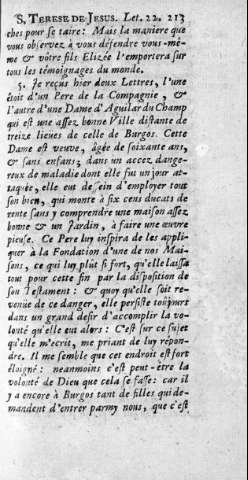 S. TERESE DE JESUS. Let. 22. 213
ches pour se taire: Mais la maniere que
vous observez à vous défendre vous-mê-
me & vôtre fils Elizée l'emportera sur
tous les témoignages du monde.
5. Je reçus hier deux Lettres, l'une
étoit d'un Pere de la Compagnie, &
l'autre d'une Dame d'Aguilar du Champ
qui est une assez bonne Ville distante de
treize lieues de celle de Burgos. Cette
Dame est veuve, âgée de soixante ans,
& sans enfans; dans un accez dange-
reux de maladie dont elle fut un jour at-
taquée, elle eut dessein d'employer tout
son bien, qui monte à six cens ducats de
rente sans y comprendre une maison assez
bonne & un Jardin, à faire une œuvre
pieuse. Ce Pere luy inspira de les appli-
quer à la Fondation d'une de nos Mai-
sons, ce qui luy plût si fort, qu'elle laissa
tout pour cette fin par la disposition de
son Testament: & quoy qu'elle soit re-
venuë de ce danger, elle persiste toûjours
dans un grand desir d'accomplir la vo-
lonté qu'elle eut alors: C'est sur ce sujet
qu'elle m'écrit, me priant de luy répon-
dre. Il me semble que cet endroit est fort
éloigné: neanmoins c'est peut-être la
volonté de Dieu que cela se fasse: car il
y a encore à Burgos tant de filles qui de-
mandent d'entrer parmy nous, que c'est